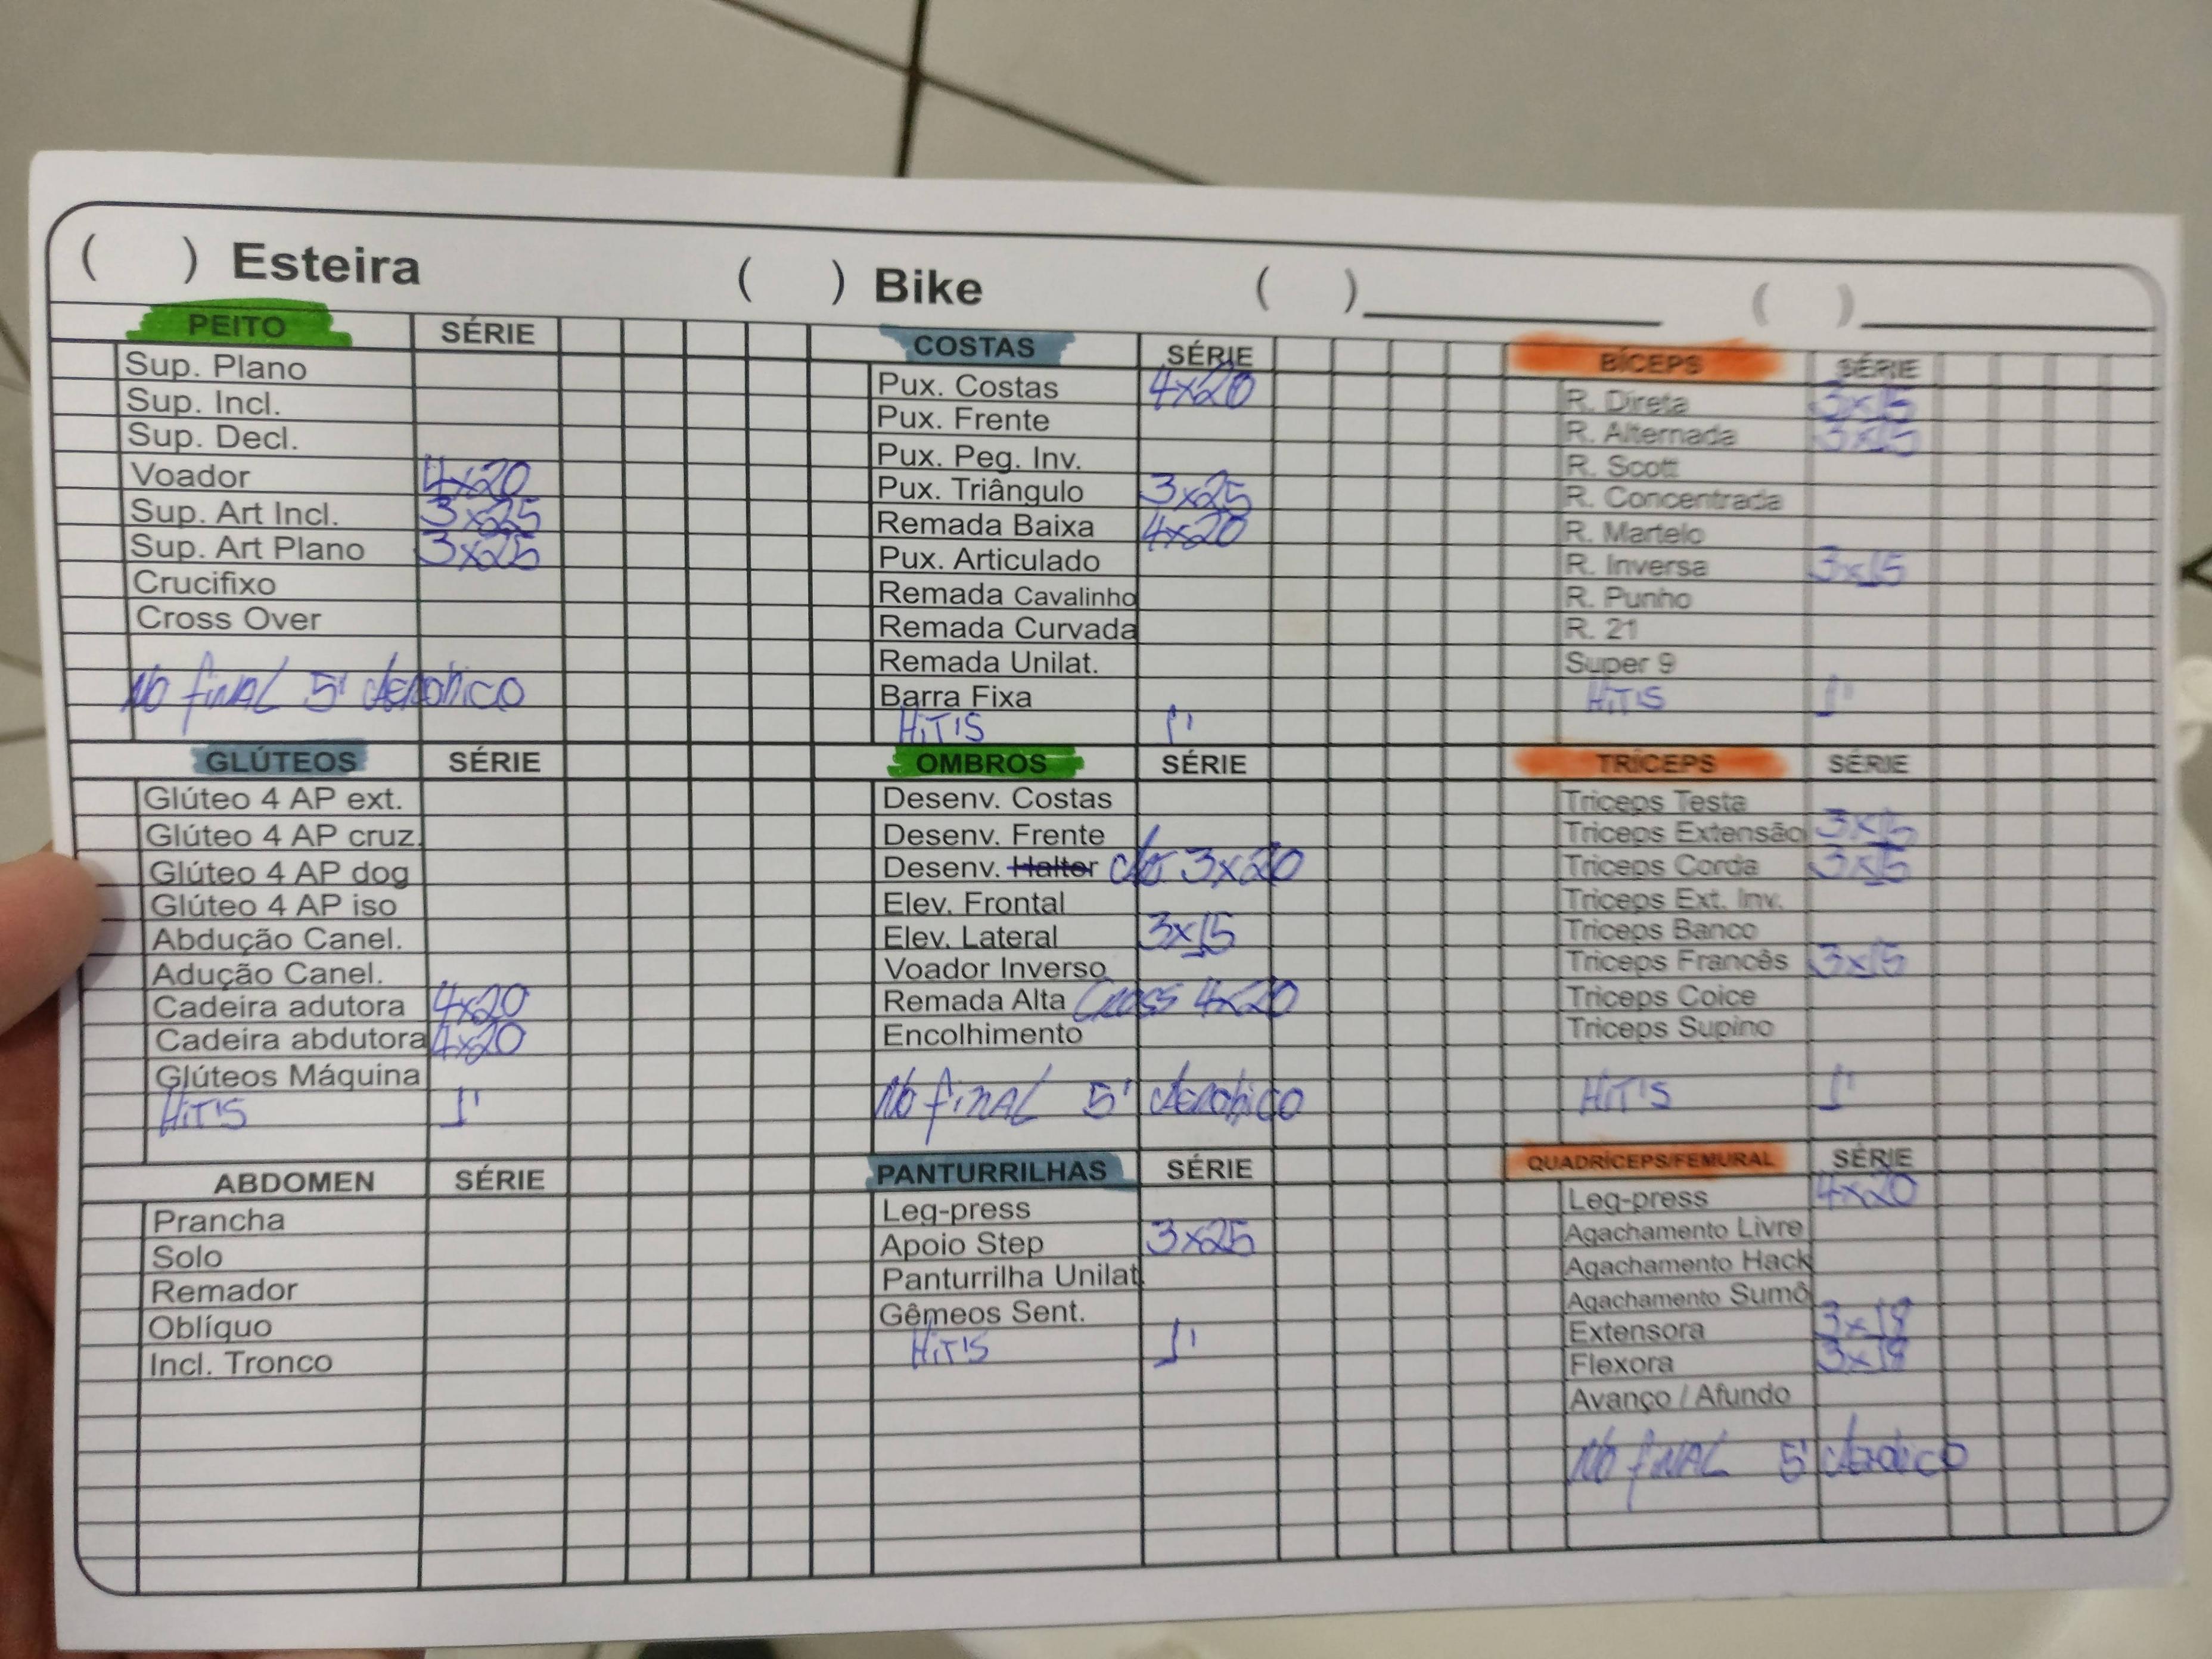 ( ) Esteira ( ) Bike ( ) ( )
PEITO SÉRIE
Sup. Plano
Sup. Incl.
Sup. Decl.
Voador 4x20
Sup. Art Incl. 3x25
Sup. Art Plano 3x25
Crucifixo
Cross Over
No final 5' Aeróbico
COSTAS SÉRIE
Pux. Costas 4x20
Pux. Frente
Pux. Peg. Inv.
Pux. Triângulo 3x25
Remada Baixa 4x20
Pux. Articulado
Remada Cavalinho
Remada Curvada
Remada Unilat.
Barra Fixa
HiT'S 1'
BÍCEPS SÉRIE
R. Direta 3x15
R. Alternada 3x15
R. Scott
R. Concentrada
R. Martelo
R. Inversa 3x15
R. Punho
R. 21
Super 9
HiT'S 1'
GLÚTEOS SÉRIE
Glúteo 4 AP ext.
Glúteo 4 AP cruz.
Glúteo 4 AP dog
Glúteo 4 AP iso
Abdução Canel.
Adução Canel.
Cadeira adutora 4x20
Cadeira abdutora 4x20
Glúteos Máquina
HiT'S 1'
OMBROS SÉRIE
Desenv. Costas
Desenv. Frente
Desenv. Halter 3x20
Elev. Frontal
Elev. Lateral 3x15
Voador Inverso
Remada Alta Cross 4x20
Encolhimento
No final 5' Aeróbico
TRÍCEPS SÉRIE
Triceps Testa
Triceps Extensão 3x15
Triceps Corda 3x15
Triceps Ext. Inv.
Triceps Banco
Triceps Francês 3x15
Triceps Coice
Triceps Supino
HiT'S 1'
ABDOMEN SÉRIE
Prancha
Solo
Remador
Oblíquo
Incl. Tronco
PANTURRILHAS SÉRIE
Leg-press
Apoio Step 3x25
Panturrilha Unilat
Gêmeos Sent.
HiT'S 1'
QUADRÍCEPS/FEMURAL SÉRIE
Leg-press 4x20
Agachamento Livre
Agachamento Hack
Agachamento Sumô
Extensora 3x18
Flexora 3x18
Avanço / Afundo
No final 5' Aeróbico